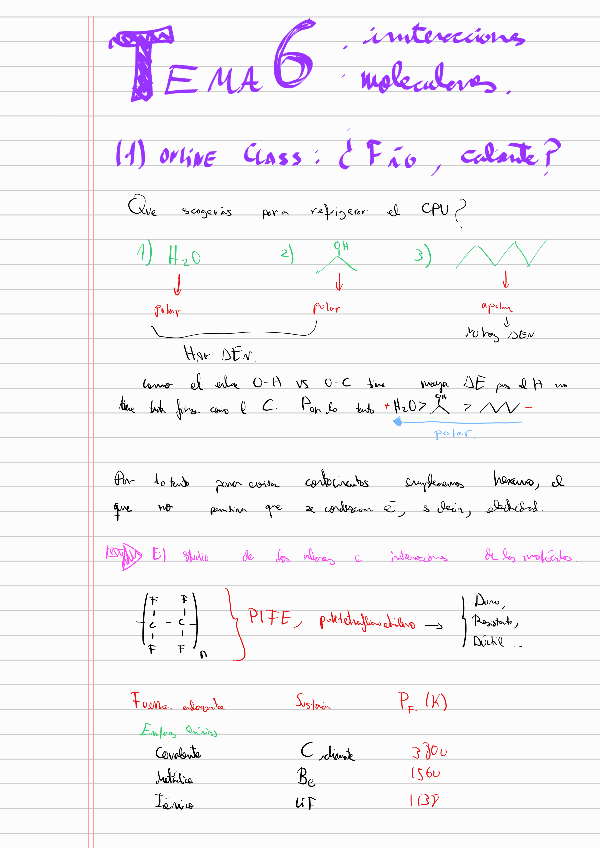 TEMA 6 : interacciones
moleculares.
(1) ONLINE CLASS: ¿Frío, caliente?
Que escogerias para refrigerar el CPU?
1) H₂O 2) OH 3)
polar polar apolar
No hay ΔEN
Hay ΔEN.
como el enlace O-H vs O-C tiene mayor ΔE pues el H no
tiene tanta fuerza como el C. Por lo tanto + H₂O > OH > -
polar.
Por lo tanto para evitar cortocircuitos emplearemos hexano, el
que no permitira que se conduzcan é, es decir, electricidad.
El studio de los enlaces e interacciones de las moléculas.
F F
- C - C -
F F n
PTFE, politetrafluoroetileno → Duro,
Resistente,
Dúctil.
Fuerza Sustancia P_F. (K)
Covalente C diamante 3800
Metálica Be 1560
Iónico LiF 1138